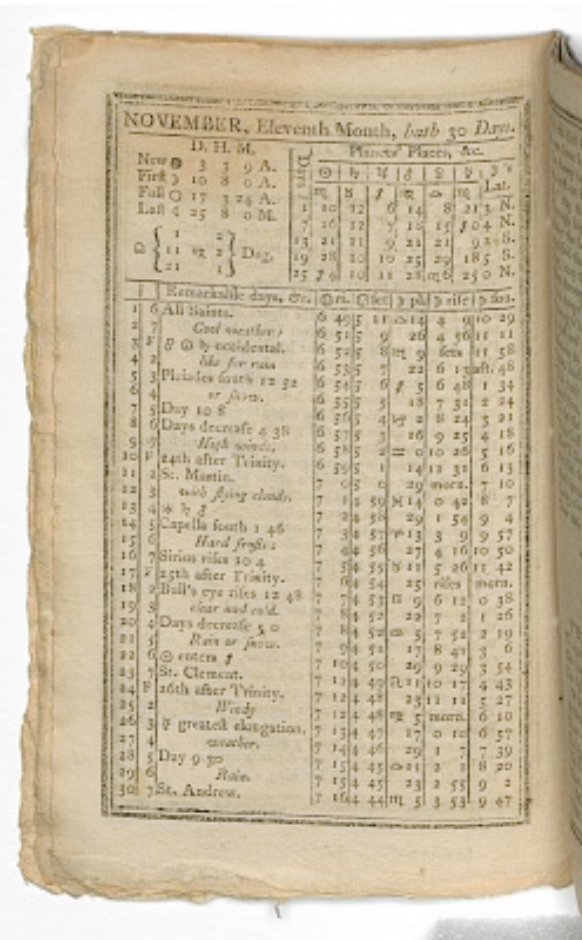 NOVEMBER, Eleventh Month, hath 30 Days.
D. H. M.
New ● 3 3 9 A.
First ☽ 10 8 0 A.
Full ○ 17 3 24 A.
Last ☾ 25 8 0 M.
☊ { 1 2 } Deg.
11 ♍ 2
21 1
Planets' Places, &c.
Days ☉ ♄ ♃ ♂ ♀ ☿ ☽'s
Lat.
1 10 12 6 14 8 21 3 N.
7 16 12 7 18 15 ♐ 0 4 N.
13 21 11 9 21 21 9 2 S.
19 28 10 10 25 29 18 5 S.
25 ♐ 4 10 11 28 ♏ 6 25 0 N.
Remarkable days, &c. ☉ ri. ☉ set ☽ pl. ☽ rise ☽ sou.
1 6 All Saints. 6 49 5 11 ♎ 14 4 9 10 29
2 7 Cool weather; 6 51 5 9 26 4 56 11 11
3 F ☍ ☉ ♄ occidental. 6 52 5 8 ♏ 9 sets 11 58
4 2 like for rain 6 53 5 7 22 6 13 aft. 48
5 3 Pleiades south 12 52 6 54 5 6 ♐ 5 6 48 1 34
6 4 or snow. 6 55 5 5 18 7 31 2 24
7 5 Day 10 8 6 56 5 4 ♑ 2 8 24 3 21
8 6 Days decrease 4 38 6 57 5 3 16 9 25 4 18
9 7 High winds, 6 58 5 2 ♒ 0 10 26 5 16
10 F 24th after Trinity. 6 59 5 1 14 11 31 6 13
11 2 St. Martin. 7 0 5 0 29 morn. 7 10
12 3 with flying clouds. 7 1 4 59 ♓ 14 0 42 8 7
13 4 7 2 4 58 29 1 54 9 4
14 5 Capella south 1 46 7 3 4 57 ♈ 13 3 9 9 57
15 6 Hard frosts: 7 4 4 56 27 4 16 10 50
16 7 Sirius rises 10 4 7 5 4 55 ♉ 11 5 26 11 42
17 F 25th after Trinity. 7 6 4 54 25 rises morn.
18 2 Bull's eye rises 12 48 7 7 4 53 ♊ 9 6 12 0 38
19 3 clear and cold. 7 8 4 52 22 7 2 1 26
20 4 Days decrease 5 0 7 8 4 52 ♋ 5 7 52 2 19
21 5 Rain or snow. 7 9 4 51 17 8 42 3 6
22 6 ☉ enters ♐ 7 10 4 50 29 9 29 3 54
23 7 St. Clement. 7 11 4 49 ♌ 11 10 17 4 43
24 F 26th after Trinity. 7 12 4 48 23 11 11 5 27
25 2 Windy 7 12 4 48 ♍ 5 morn. 6 10
26 3 ☿ greatest elongation. 7 13 4 47 17 0 10 6 57
27 4 weather. 7 14 4 46 29 1 7 7 39
28 5 Day 9 30 7 15 4 45 ♎ 11 2 1 8 20
29 6 Rain. 7 15 4 45 23 2 55 9 2
30 7 St. Andrew. 7 16 4 44 ♏ 5 3 53 9 47